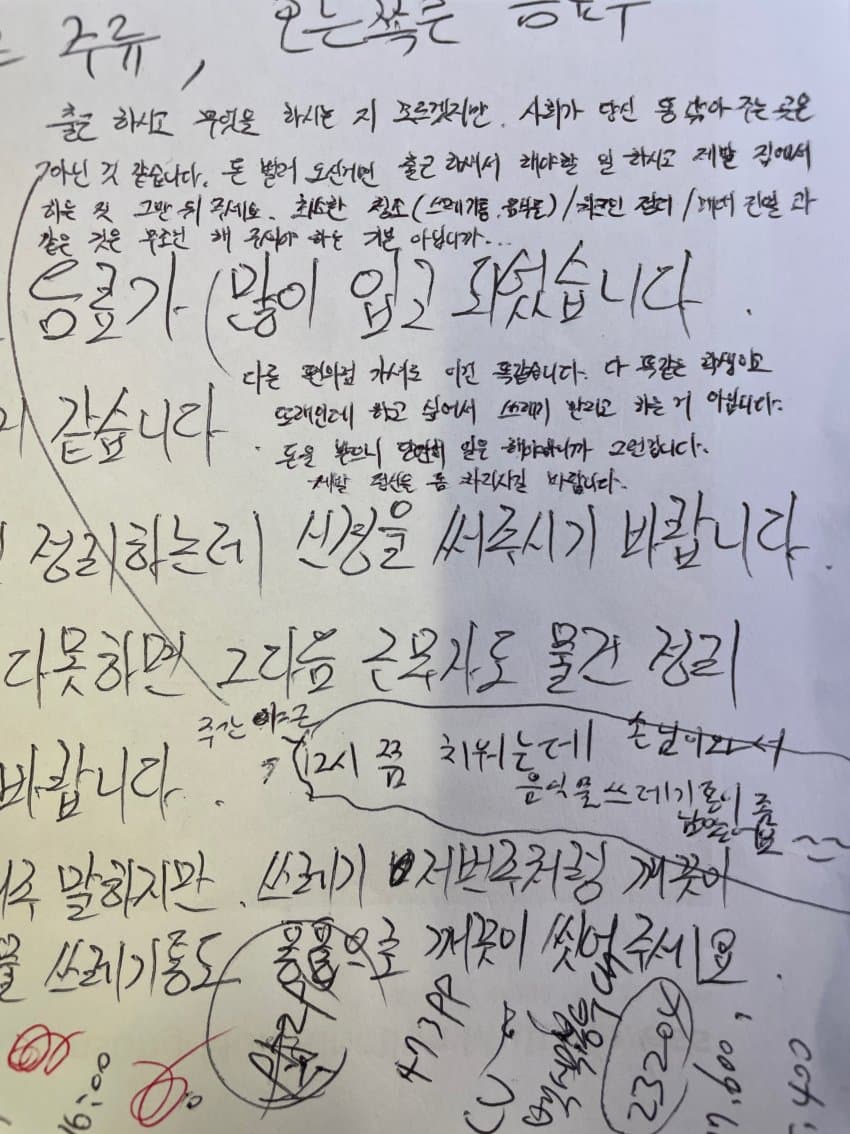 주류, 오른쪽은 음료수
출근 하시고 무엇을 하시는 지 모르겠지만. 사회가 당신 똥 닦아 주는 곳은
아닌 것 같습니다. 돈 벌러 오신거면 출근 하셔서 해야할 일 하시고 제발 집에서
하는 짓 그만 둬 주세요. 최소한 청소(쓰레기통, 음식물)/체크인 점검/매대 진열 과
같은 것은 무조건 해 주셔야 하는 기본 아닙니까...
음료가 많이 입고 되었습니다.
다른 편의점 가셔도 이건 똑같습니다. 다 똑같은 학생이고
같습니다.
또래인데 하고 싶어서 쓰레기 버리고 하는 거 아닙니다.
돈을 받으니 당연히 일은 해야하니까 그런겁니다.
제발 정신을 좀 차리시길 바랍니다.
정리하는데 신경을 써주시기 바랍니다.
다못하면 그다음 근무자로 물건 정리
주간 야근
12시 쯤 치워는데 손님이와서
바랍니다.
음식물쓰레기통이 좀
말하지만. 쓰레기 저번주처럼 깨끗이
쓰레기통도 퐁퐁으로 깨끗이 씻어주세요.
473PP
23204
6:00